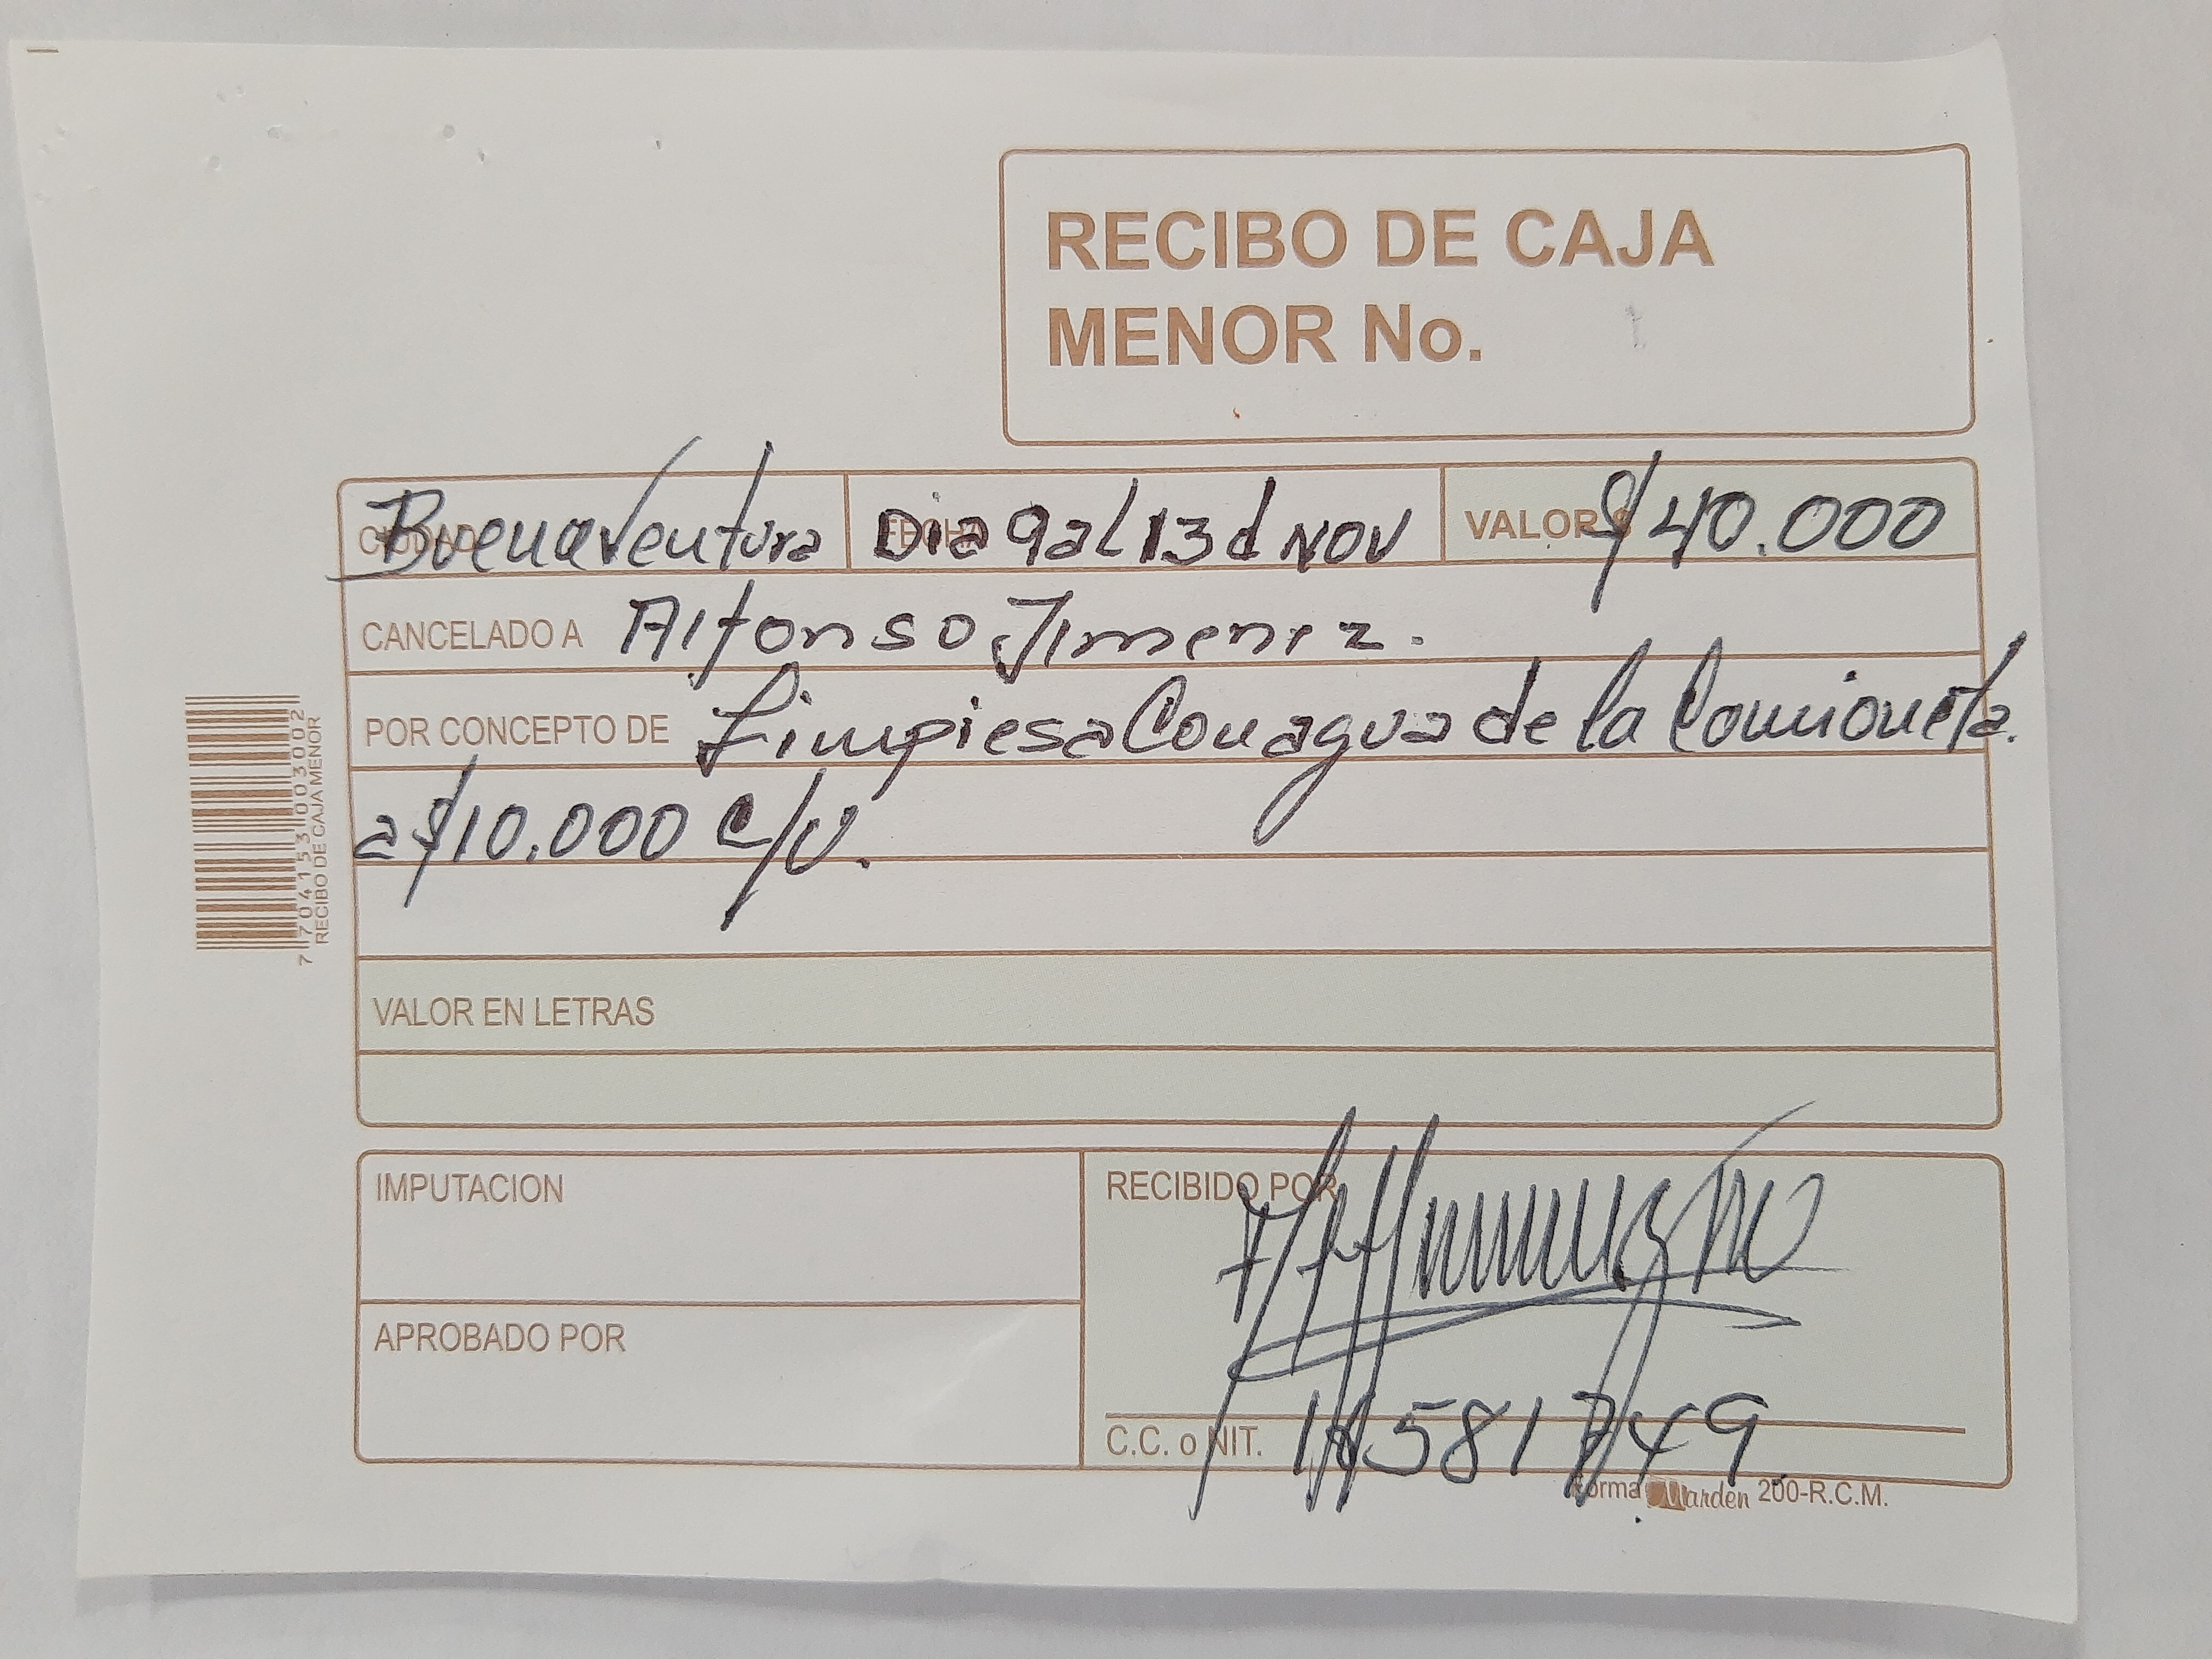 RECIBO DE CAJA
MENOR No.
CIUDAD Buenaventura FECHA Dia 9 al 13 d NOV VALOR $ $40.000
CANCELADO A Alfonso Jimenez.
POR CONCEPTO DE Limpiesa Con agua de la Camioneta.
a $10.000 c/u.
VALOR EN LETRAS
IMPUTACION
RECIBIDO POR
APROBADO POR
C.C. o NIT.
forma Marden 200-R.C.M.
7704153003002
RECIBO DE CAJA MENOR